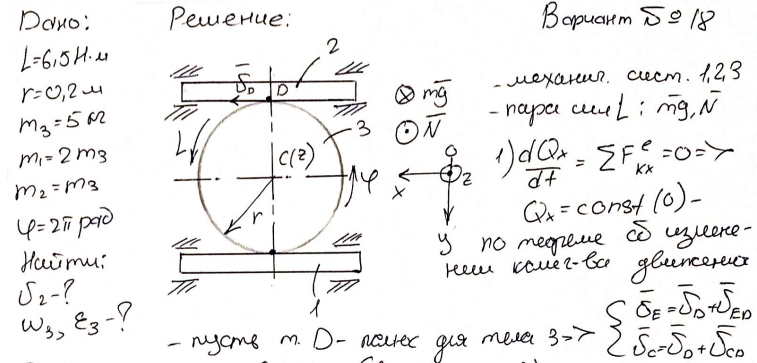 Дано:
L=6,5 Н·м
r=0,2 м
m₃=5 кг
m₁=2m₃
m₂=m₃
φ=2π рад
Найти:
υ₂-?
ω₃, ε₃-?
Решение:
2
ῡ_D
D
3
L
C(z)
φ
r
1
⊗ mḡ
⊙ N̄
O
x
z
y
Вариант №18
-механич. сист. 1,2,3
-пара сил L; mḡ, N̄
1) dQₓ/dt = ΣFᵉₖₓ = 0 =>
Qₓ = const (0) -
по теореме об измене-
нии колич-ва движения
- пусть т. D - полюс для тела 3 => { ῡ_E = ῡ_D + ῡ_ED
ῡ_C = ῡ_D + ῡ_CD